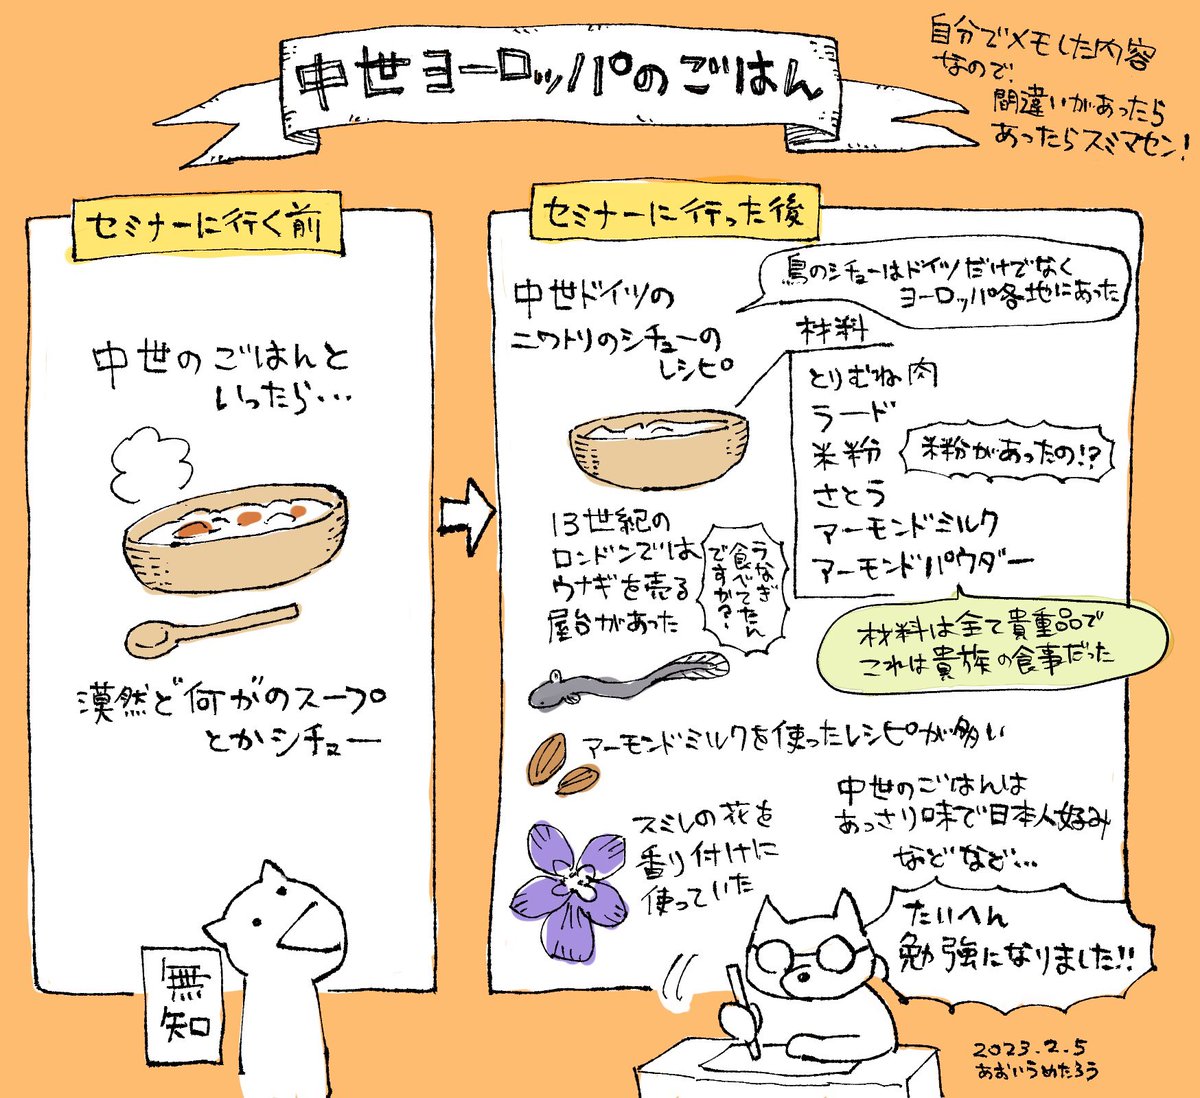 中世ヨーロッパのごはん
自分でメモした内容
なので、
間違いがあったら
あったらスミマセン!
セミナーに行く前
中世のごはんと
いったら…
漠然と何がのスープ
とかシチュー
無知
セミナーに行った後
中世ドイツの
ニワトリのシチューの
レシピ
鳥のシチューはドイツだけでなく
ヨーロッパ各地にあった
材料
とりむね肉
ラード
米粉
米粉があったの!?
さとう
アーモンドミルク
アーモンドパウダー
材料は全て貴重品で
これは貴族の食事だった
13世紀の
ロンドンでは
ウナギを売る
屋台があった
うなぎ
食べてたん
ですか?
アーモンドミルクを使ったレシピが多い
スミレの花を
香り付けに
使っていた
中世のごはんは
あっさり味で日本人好み
などなど…
たいへん
勉強になりました!!
2023.2.5
あおいうめたろう